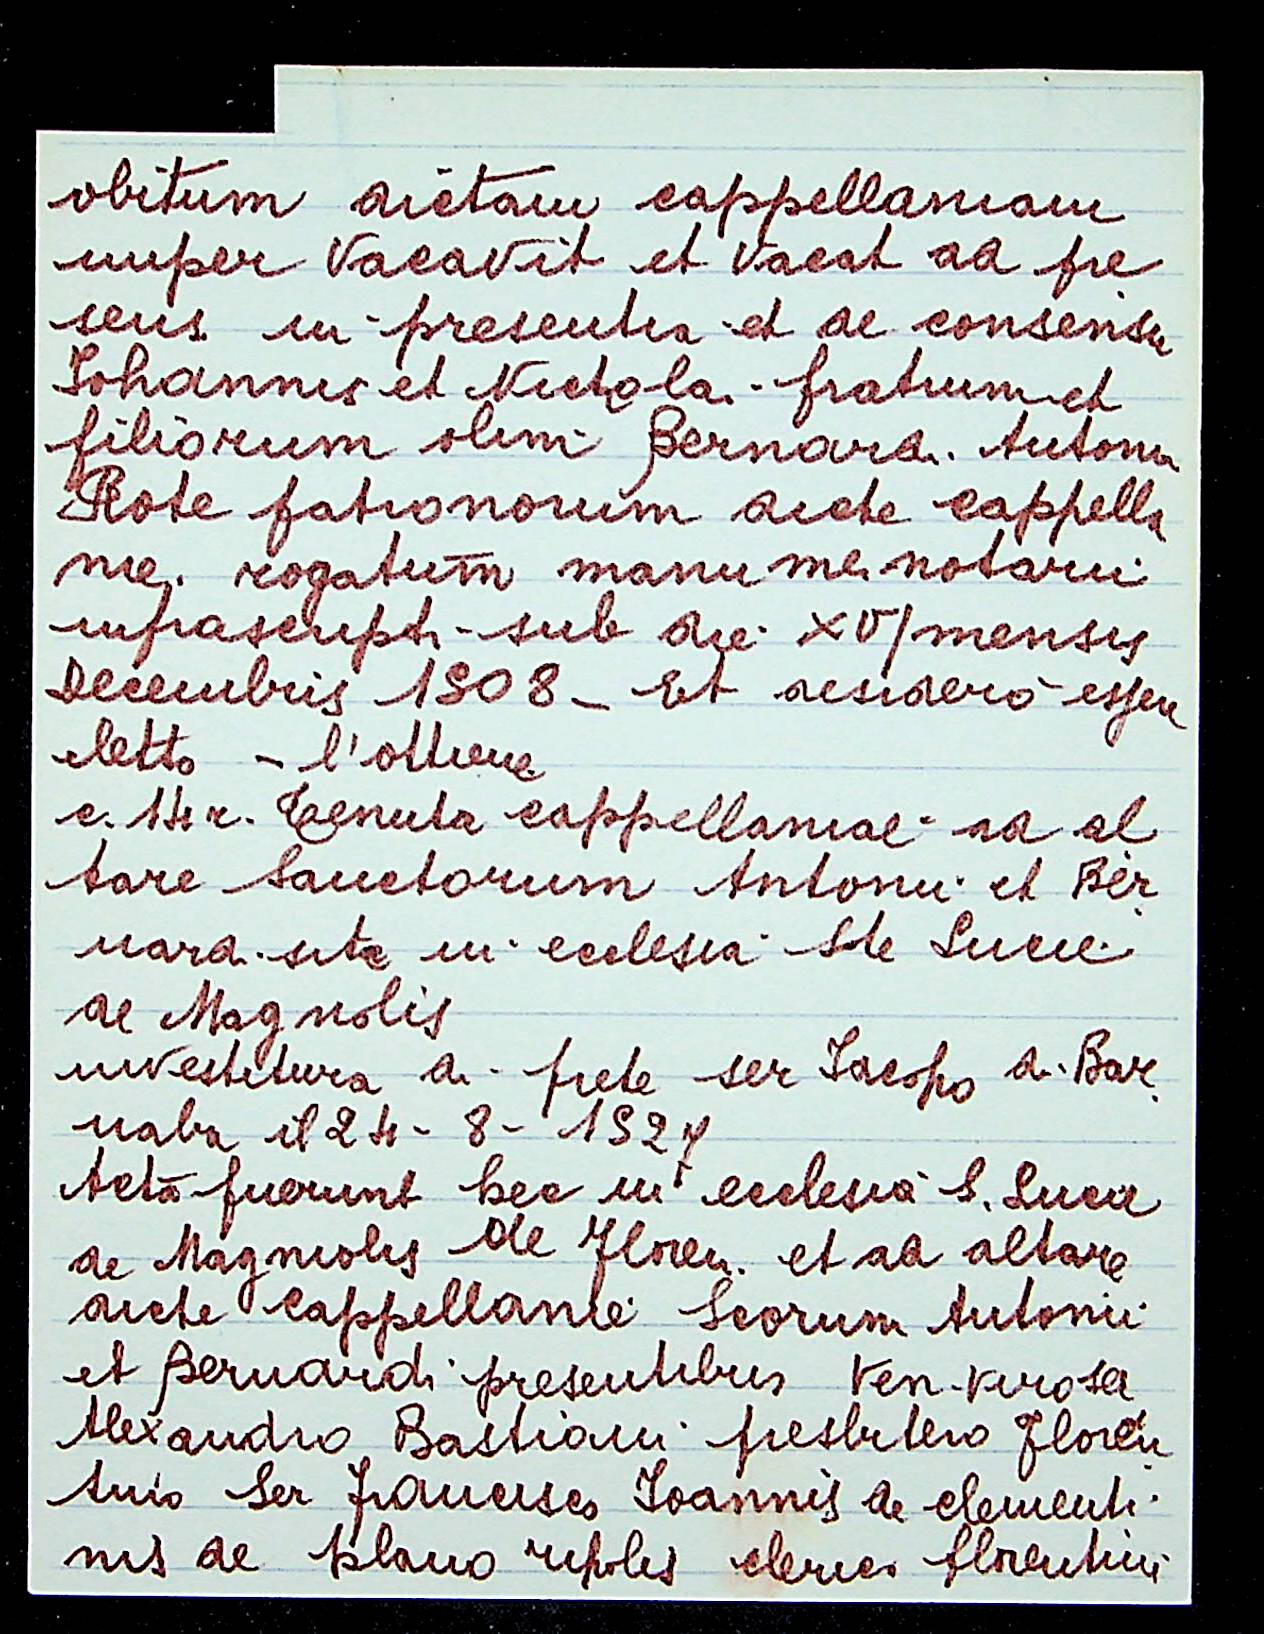 obitum dictam cappellaniam
nuper vacavit et vacat ad pre
sens in presentia et de consensu
Johannis et Nicola. fratrum et
filiorum olim Bernardi Antonii
Rote patronorum dicte cappella
nie. rogatum manu mei notarii
infrascripti - sub die XV/mensis
Decembris 1508 - Et desiderò essere
eletto - l'ottiene
c. 14 r. Tenuta cappellaniae ad al
tare Sanctorum Antonii et Ber
nardi site in ecclesia Ste Lucie
de Magnolis
investitura di prete ser Jacopo di Bar
naba il 24 - 8 - 1527
Acta fuerunt hec in ecclesia S. Lucie
de Magnolis de Floren. et ad altare
dicte cappellanie Scorum Antonii
et Bernardi presentibus Ven.
Alexandro Bastiani presbitero Floren
tino Ser Francisco Joannis de clementi
nis de plano ripolis clerico florentini